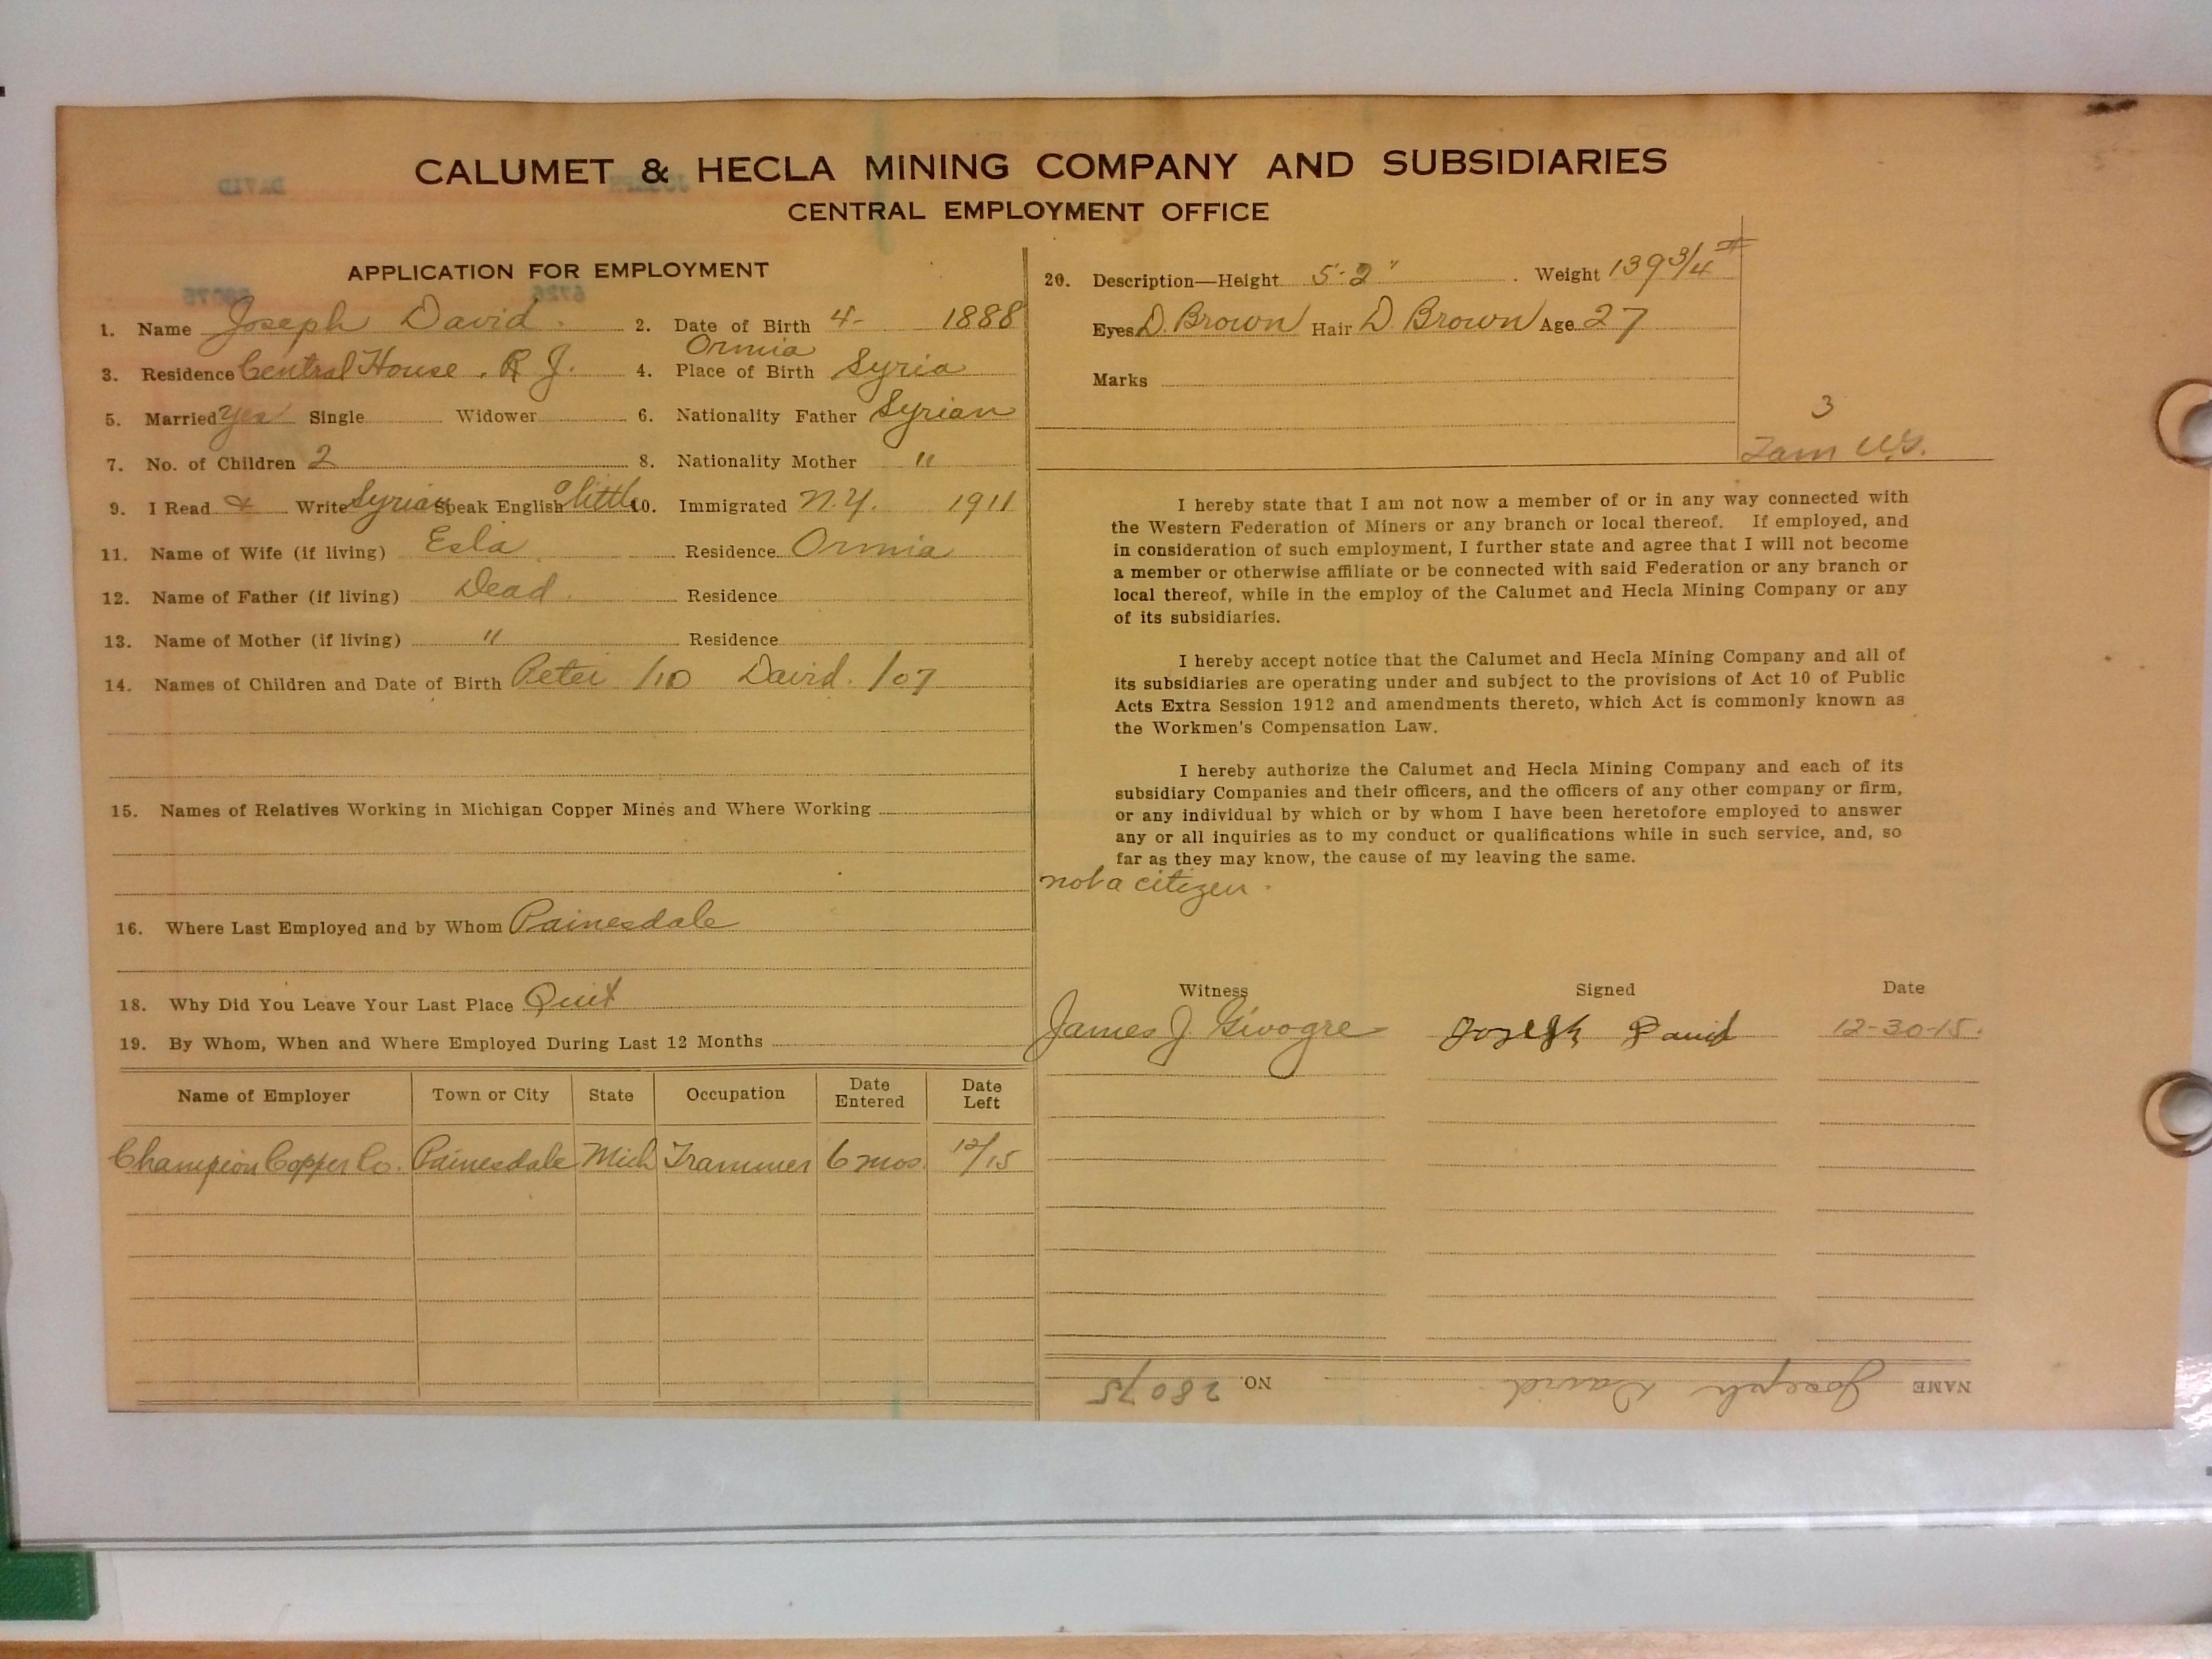 CALUMET & HECLA MINING COMPANY AND SUBSIDIARIES
CENTRAL EMPLOYMENT OFFICE
APPLICATION FOR EMPLOYMENT
1. Name Joseph David. 2. Date of Birth 4- 1888
3. Residence Central House. R J. 4. Place of Birth Ormia Syria
5. Married Yes Single Widower 6. Nationality Father Syrian
7. No. of Children 2 8. Nationality Mother "
9. I Read & Write Syrian Speak English a little 10. Immigrated N.Y. 1911
11. Name of Wife (if living) Esla Residence Ormia
12. Name of Father (if living) Dead. Residence
13. Name of Mother (if living) " Residence
14. Names of Children and Date of Birth Peter /10 David. /07
15. Names of Relatives Working in Michigan Copper Mines and Where Working
16. Where Last Employed and by Whom Painesdale
18. Why Did You Leave Your Last Place Quit
19. By Whom, When and Where Employed During Last 12 Months
Name of Employer Town or City State Occupation Date Entered Date Left
Champion Copper Co. Painesdale Mich Trammer 6 mos. 12/15
20. Description—Height 5-2" Weight 139 3/4 #
Eyes D. Brown Hair D. Brown Age 27
Marks
3
I hereby state that I am not now a member of or in any way connected with
the Western Federation of Miners or any branch or local thereof. If employed, and
in consideration of such employment, I further state and agree that I will not become
a member or otherwise affiliate or be connected with said Federation or any branch or
local thereof, while in the employ of the Calumet and Hecla Mining Company or any
of its subsidiaries.
I hereby accept notice that the Calumet and Hecla Mining Company and all of
its subsidiaries are operating under and subject to the provisions of Act 10 of Public
Acts Extra Session 1912 and amendments thereto, which Act is commonly known as
the Workmen's Compensation Law.
I hereby authorize the Calumet and Hecla Mining Company and each of its
subsidiary Companies and their officers, and the officers of any other company or firm,
or any individual by which or by whom I have been heretofore employed to answer
any or all inquiries as to my conduct or qualifications while in such service, and, so
far as they may know, the cause of my leaving the same.
not a citizen.
Witness Signed Date
James J. Givogre Joseph David 12-30-15.
NAME Joseph David NO. 28075